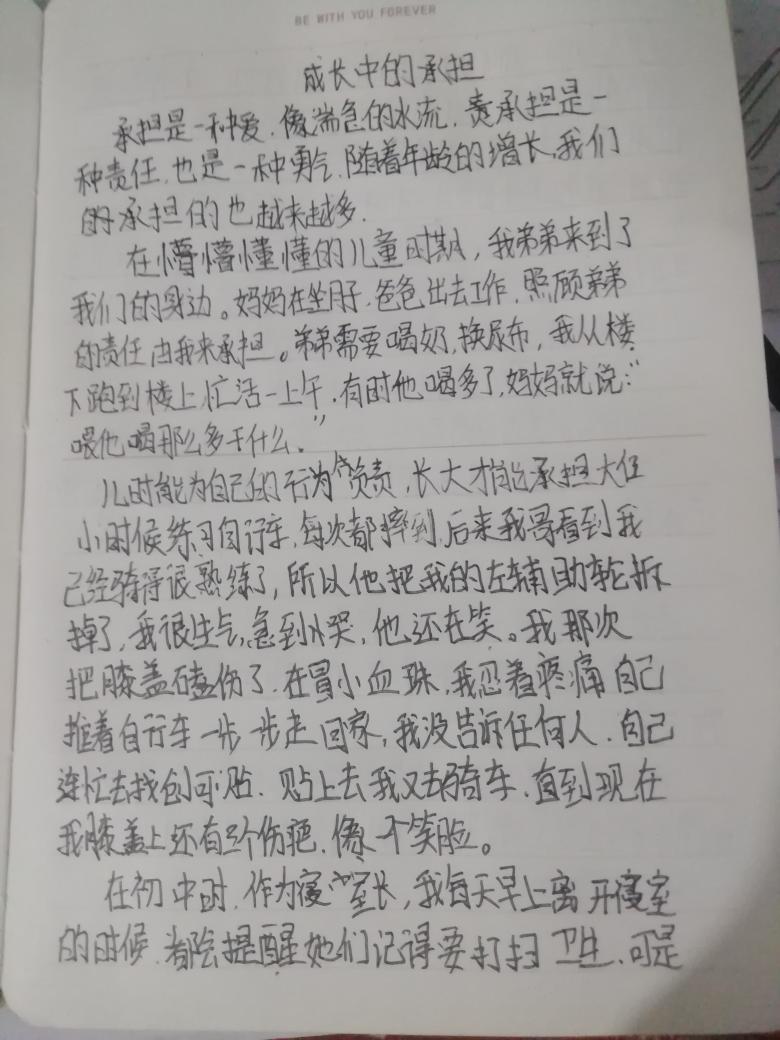 BE WITH YOU FOREVER
成长中的承担
承担是一种爱.像湍急的水流.责承担是一
种责任.也是一种勇气.随着年龄的增长,我们
的承担的也越来越多.
在懵懵懂懂的儿童时期,我弟弟来到了
我们的身边。妈妈在坐月子.爸爸出去工作.照顾弟弟
的责任由我来承担。弟弟需要喝奶,换尿布,我从楼
下跑到楼上,忙活一上午.有时他喝多了,妈妈就说:“
喂他喝那么多干什么.”
儿时能为自己的行为负责,长大才能承担大任
小时候练习自行车,每次都摔到,后来我哥看到我
已经骑得很熟练了,所以他把我的左辅助轮拆
掉了,我很生气,急到哭,他还在笑。我那次
把膝盖磕伤了.在冒小血珠,我忍着疼痛自己
推着自行车一步一步走回家,我没告诉任何人.自己
连忙去找创可贴.贴上去我又去骑车.直到现在
我膝盖上还有三个伤疤.像个笑脸。
在初中时.作为寝室长,我每天早上离开寝室
的时候.都会提醒她们记得要打扫卫生.可是